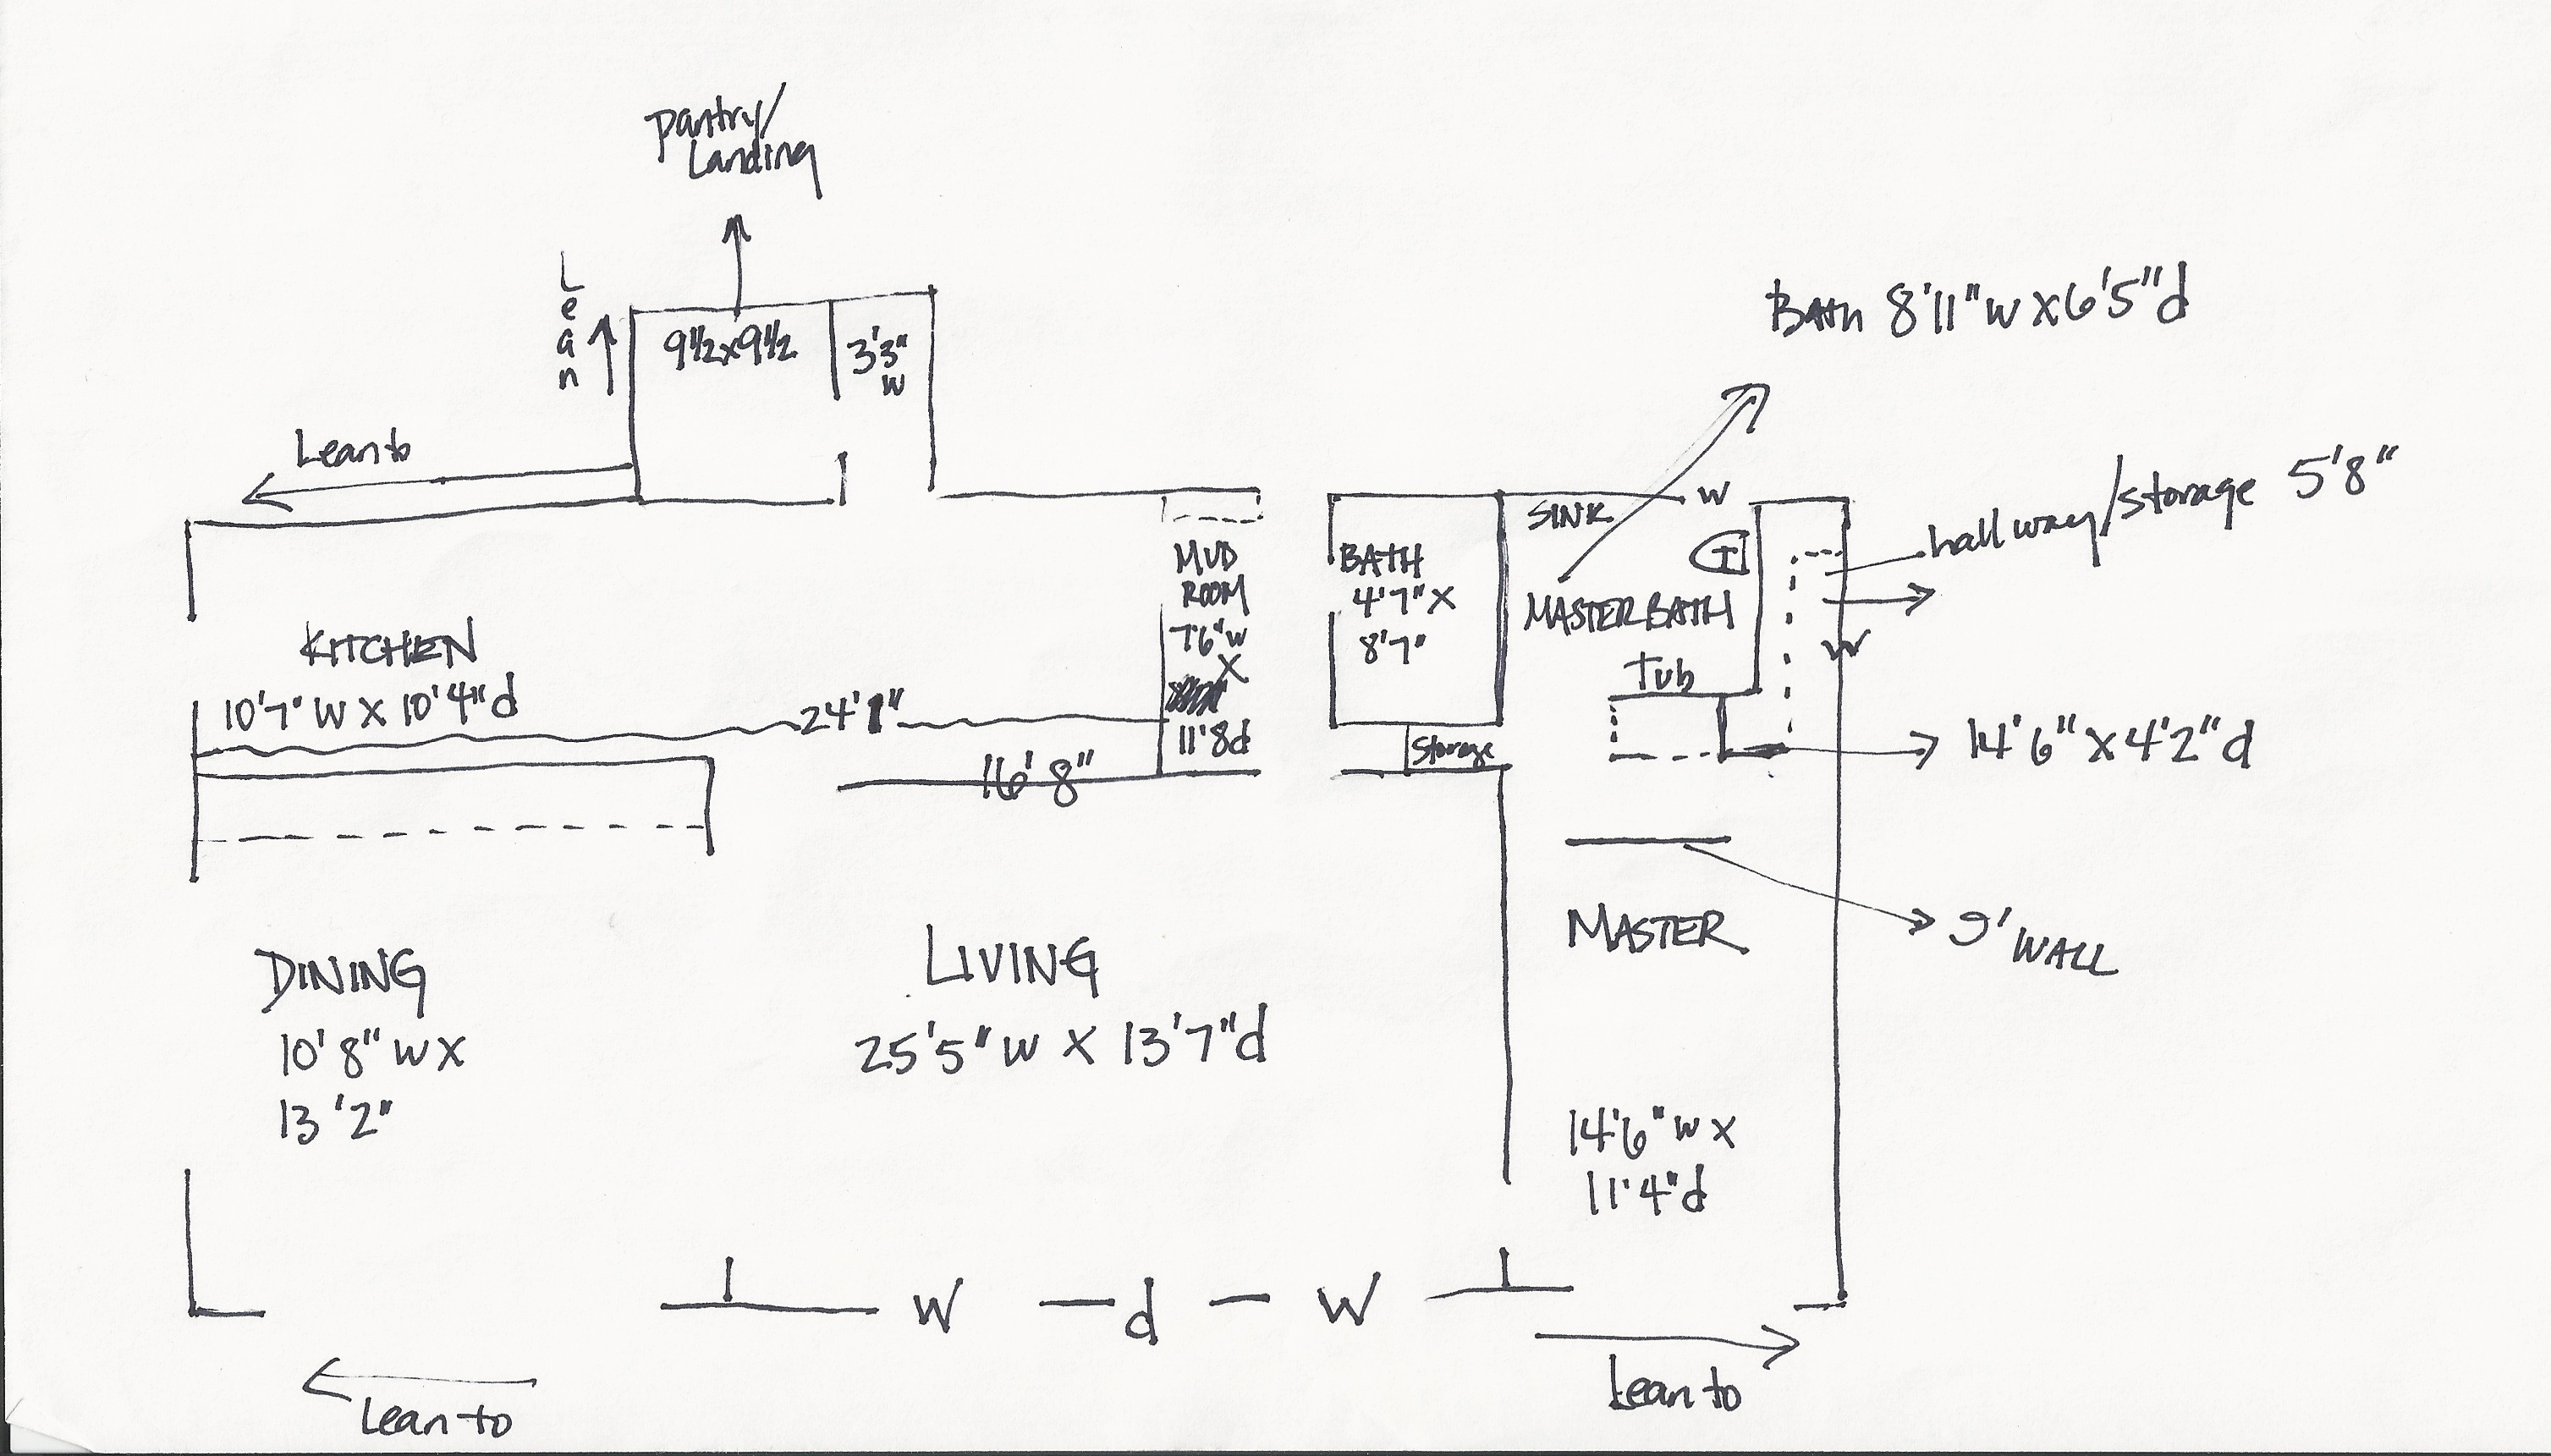 Pantry/
Landing
Lean
Lean to
9 1/2 x 9 1/2
3'3"
W
Bath 8'11" w x 6'5" d
hallway/storage 5'8"
SINK
W
T
MUD
ROOM
7'6" W
X
11'8d
BATH
4'7" X
8'7"
MASTER BATH
W
Tub
KITCHEN
10'7" W X 10'4" d
24'1"
16'8"
Storage
14'6" x 4'2" d
MASTER
9' WALL
DINING
10'8" W X
13'2"
LIVING
25'5" W X 13'7" d
14'6" W X
11'4" d
W d W
Lean to
Lean to